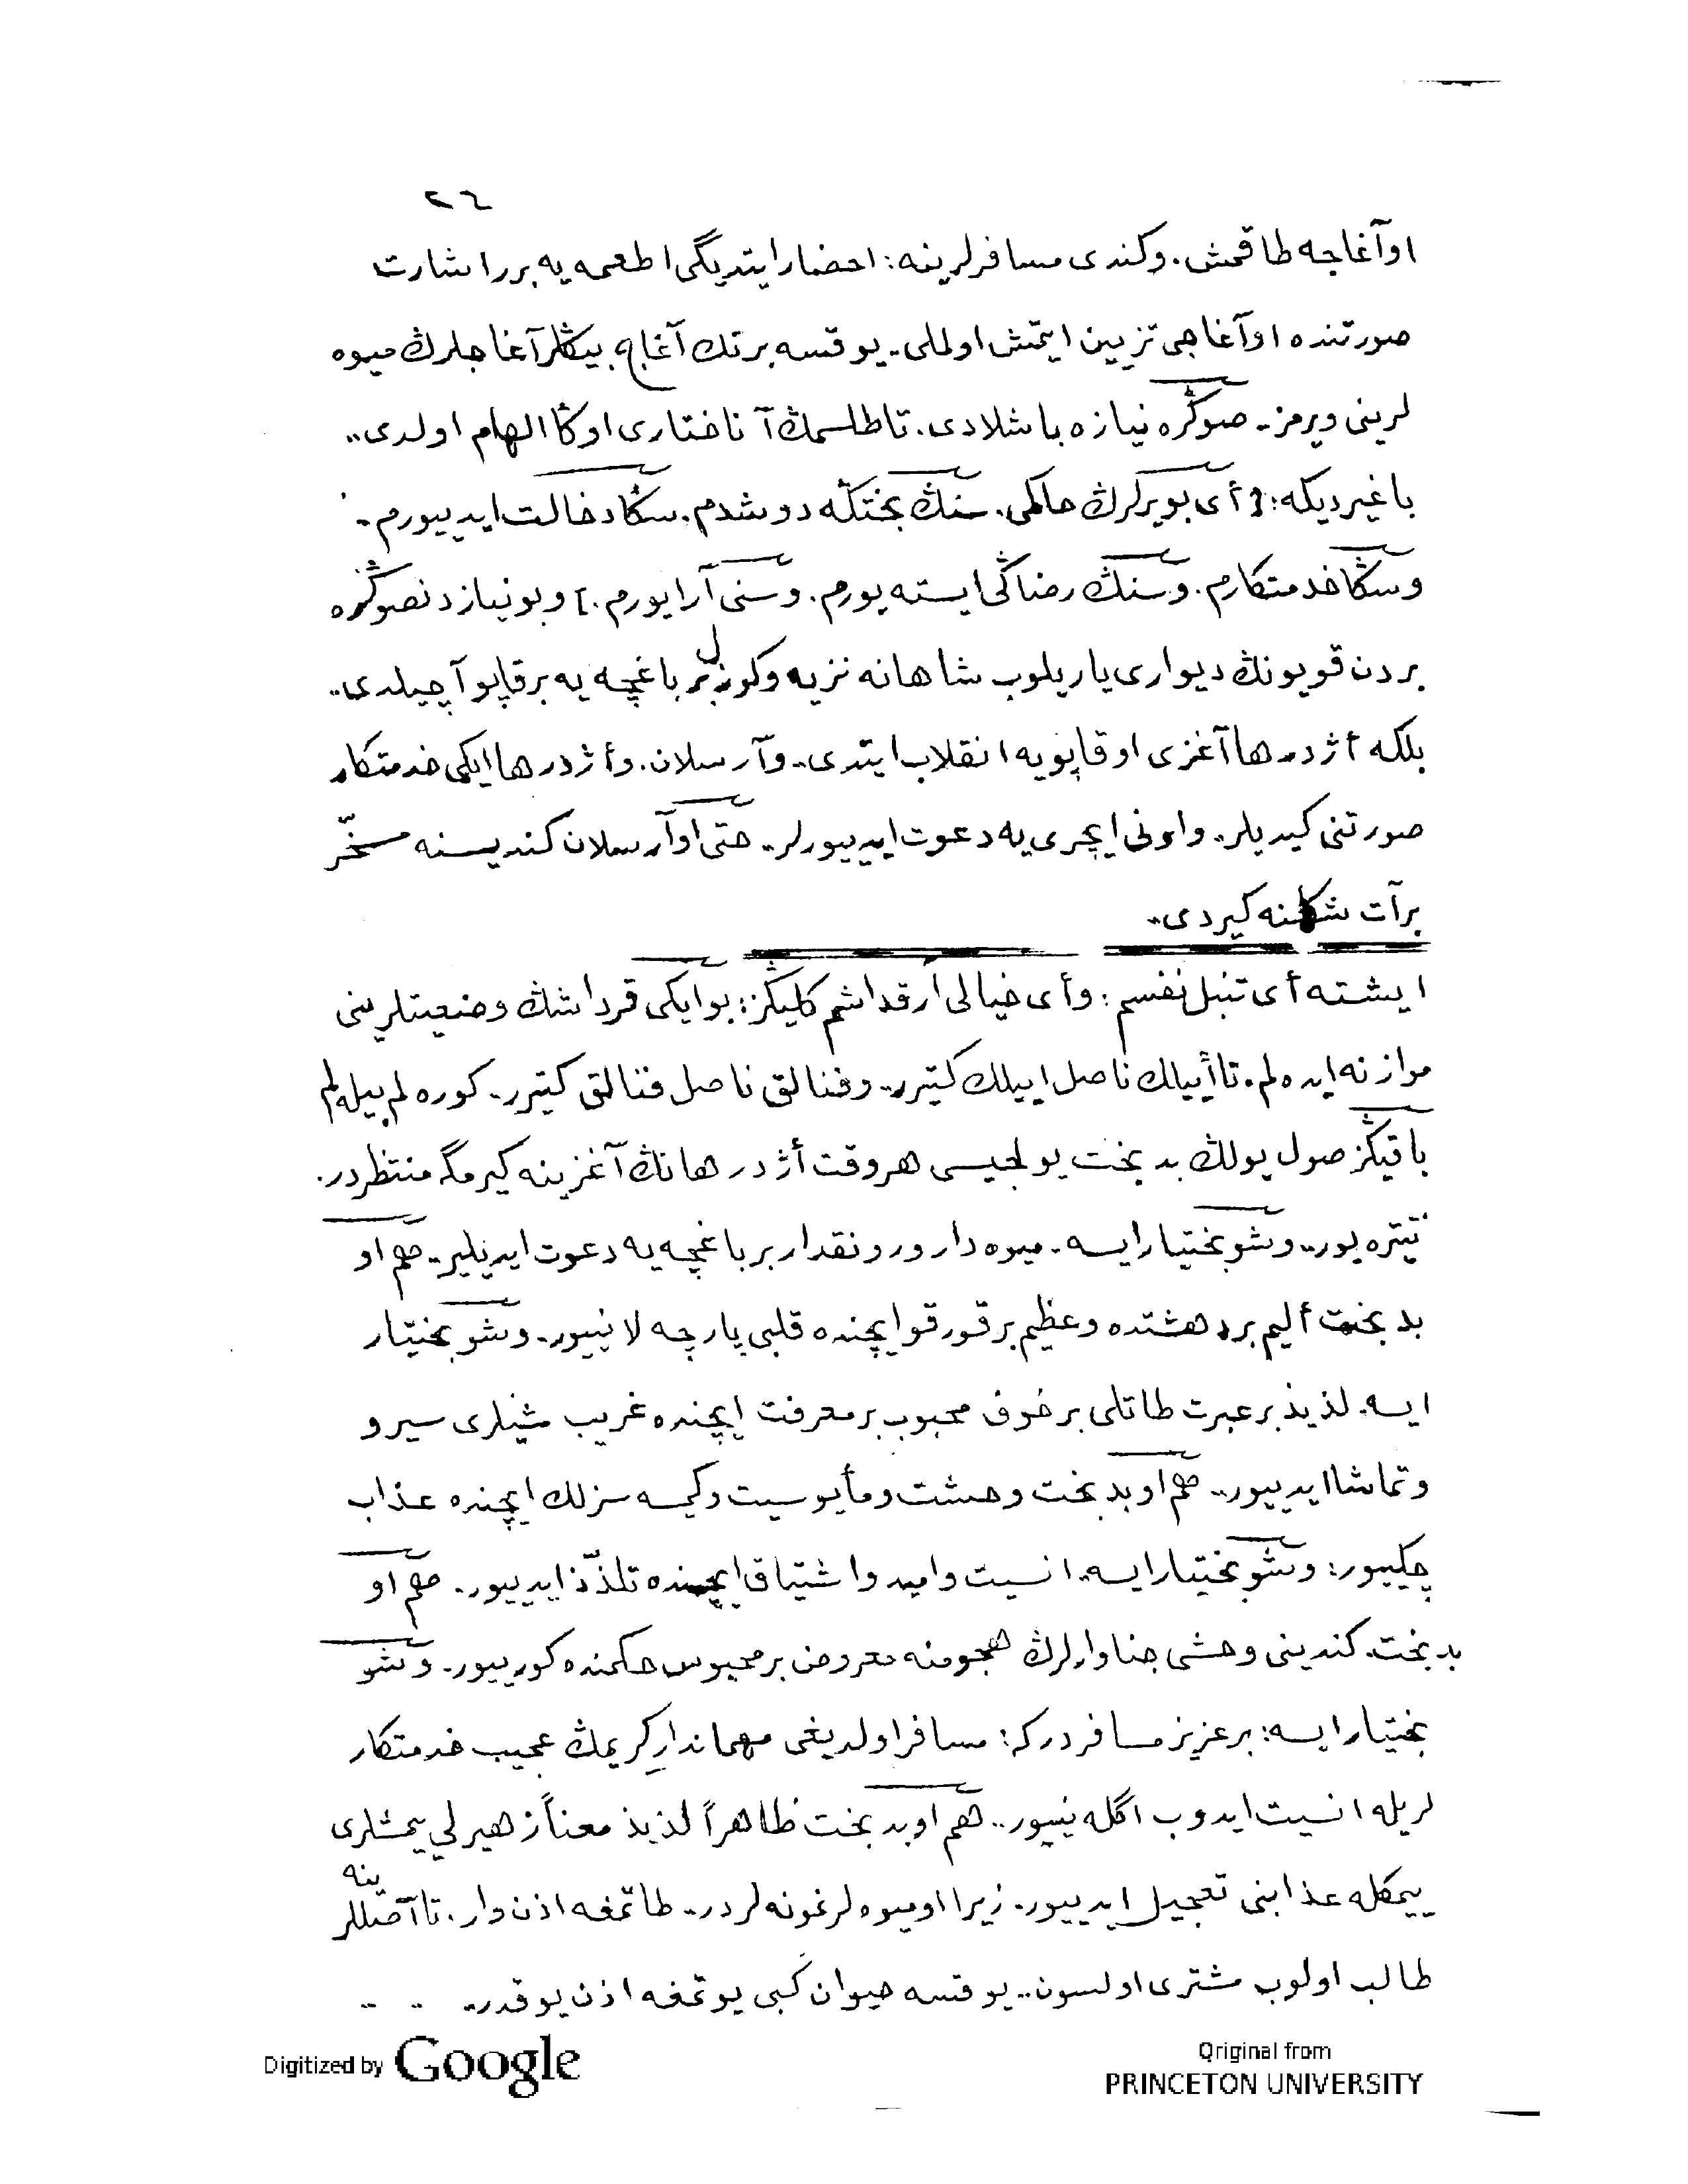 ٢٦
او آغاجه طاقمش. وكندى مسافرلرينه: احضار ايتديگى اطعمه يه برر اشارت
صورتنده او آغاجى تزيين ايتمش اولملى. يوقسه بر تك آغاج بيڭلر آغاجلرڭ ميوه
لرينى ويرمز. صوڭره نيازه باشلادى. تا طلسمڭ آناختارى اوڭا الهام اولدى..
باغيرديكه: [أى بو يرلرڭ حاكمى. سنڭ بختڭه دوشدم. سڭا دخالت ايدييورم.
وسڭا خدمتكارم. وسنڭ رضاڭى ايسته يورم. وسنى آرايورم.] وبو نيازدنصوڭره
بردن قويونڭ ديوارى ياريلوب شاهانه نزيه وكوزل بر باغچه يه بر قاپو آچيلدى..
بلكه أژدرها آغزى او قاپويه انقلاب ايتدى.. وآرسلان. وأژدرها ايكى خدمتكار
صورتنى كيديلر.. واونى ايچرى يه دعوت ايدييورلر.. حتى او آرسلان كنديسنه مسخّر
بر آت شكلنه كيردى..
ايشته أى تنبل نفسم: وأى خيالى ارقداشم كليڭز: بو ايكى قرداشڭ وضعيتلرينى
موازنه ايده لم. تا أييلك ناصل اييلك كتيرر.. وفنالق ناصل فنالق كتيرر. كوره لم بيله لم
باقيڭز صول يولڭ بدبخت يولجيسى هروقت أژدرهانڭ آغزينه كيرمگه منتظردر.
تيتره يور.. وشو بختيار ايسه. ميوه دار ورونقدار بر باغچه يه دعوت ايديلير.. هم او
بدبخت أليم بر دهشتده وعظيم بر قورقو ايچنده قلبى پارچه لانييور. وشو بختيار
ايسه. لذيذ بر عبرت طاتلى بر خوف محبوب بر معرفت ايچنده غريب شيئلرى سير و
وتماشا ايدييور.. هم او بدبخت وحشت ومأيوسيت وكيمسه سزلك ايچنده عذاب
چكييور: وشو بختيار ايسه. انسيت واميد واشتياق ايچنده تلذّذ ايدييور.. هم او
بدبخت. كندينى وحشى جناوارلرڭ هجومنه معروض بر محبوس حكمنده كورييور. وشو
بختيار ايسه: بر عزيز مسافردركه: مسافر اولديغى مهماندارِ كريمڭ عجيب خدمتكار
لريله انسيت ايدوب اگله نييور.. هم او بدبخت ظاهراً لذيذ معناً زهيرلى يمشلرى
ييمكله عذابنى تعجيل ايدييور. زيرا او ميوه لر نمونه لردر.. طاتمغه اذن وار. تا آصيللرينه
طالب اولوب مشترى اولسون.. يوقسه حيوان كبى يوتمغه اذن يوقدر..
Digitized by Google
Original from
PRINCETON UNIVERSITY